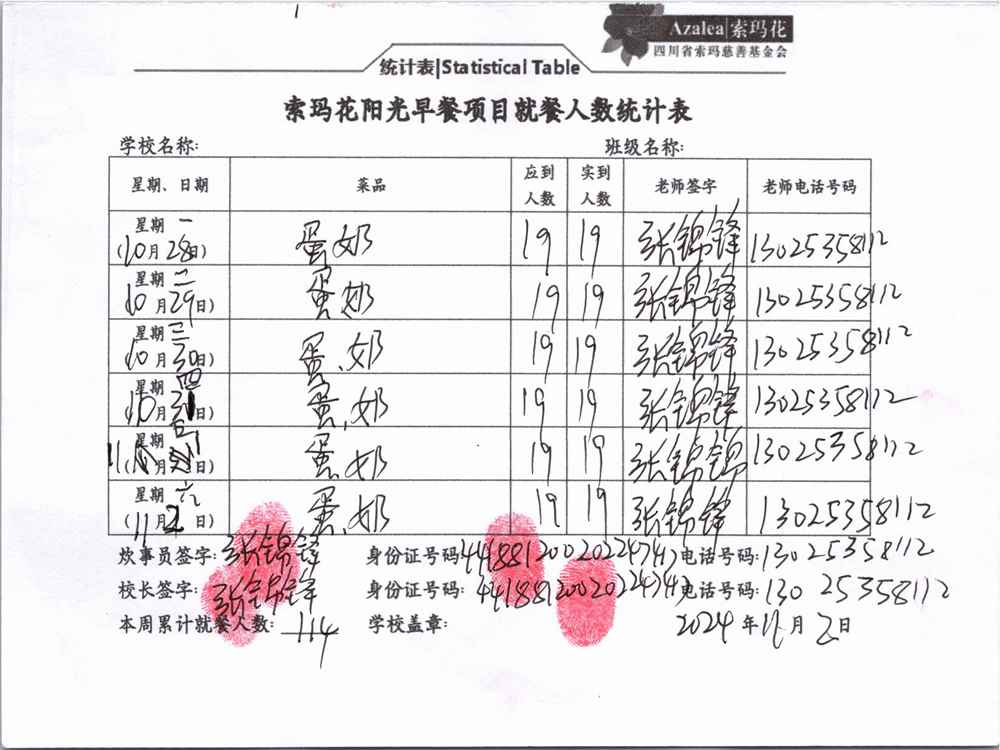 Azalea|索玛花
四川省索玛慈善基金会
统计表|Statistical Table
索玛花阳光早餐项目就餐人数统计表
学校名称: 班级名称:
星期、日期 菜品 应到人数 实到人数 老师签字 老师电话号码
星期一 (10月28日) 蛋.奶 19 19 张锦锋 13025358112
星期二 (10月29日) 蛋.奶 19 19 张锦锋 13025358112
星期三 (10月30日) 蛋.奶 19 19 张锦锋 13025358112
星期四 (10月31日) 蛋.奶 19 19 张锦锋 13025358112
星期 (11月 日) 蛋.奶 19 19 张锦锦 13025358112
星期六 (11月2日) 蛋.奶 19 19 张锦锋 13025358112
炊事员签字: 张锦锋 身份证号码: 电话号码: 13025358112
校长签字: 张锦锋 身份证号码: 电话号码: 13025358112
本周累计就餐人数: 114 学校盖章: 2024年11月2日